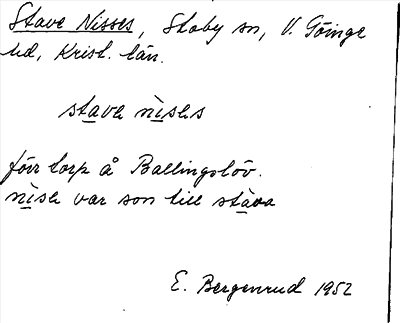 Stave Nisses, Stoby sn, V. Göinge
hd, Krist. län.
stavə nìsəs
förr torp å Ballingslöv.
nìsə var son till stàva
E. Bergenrud 1952